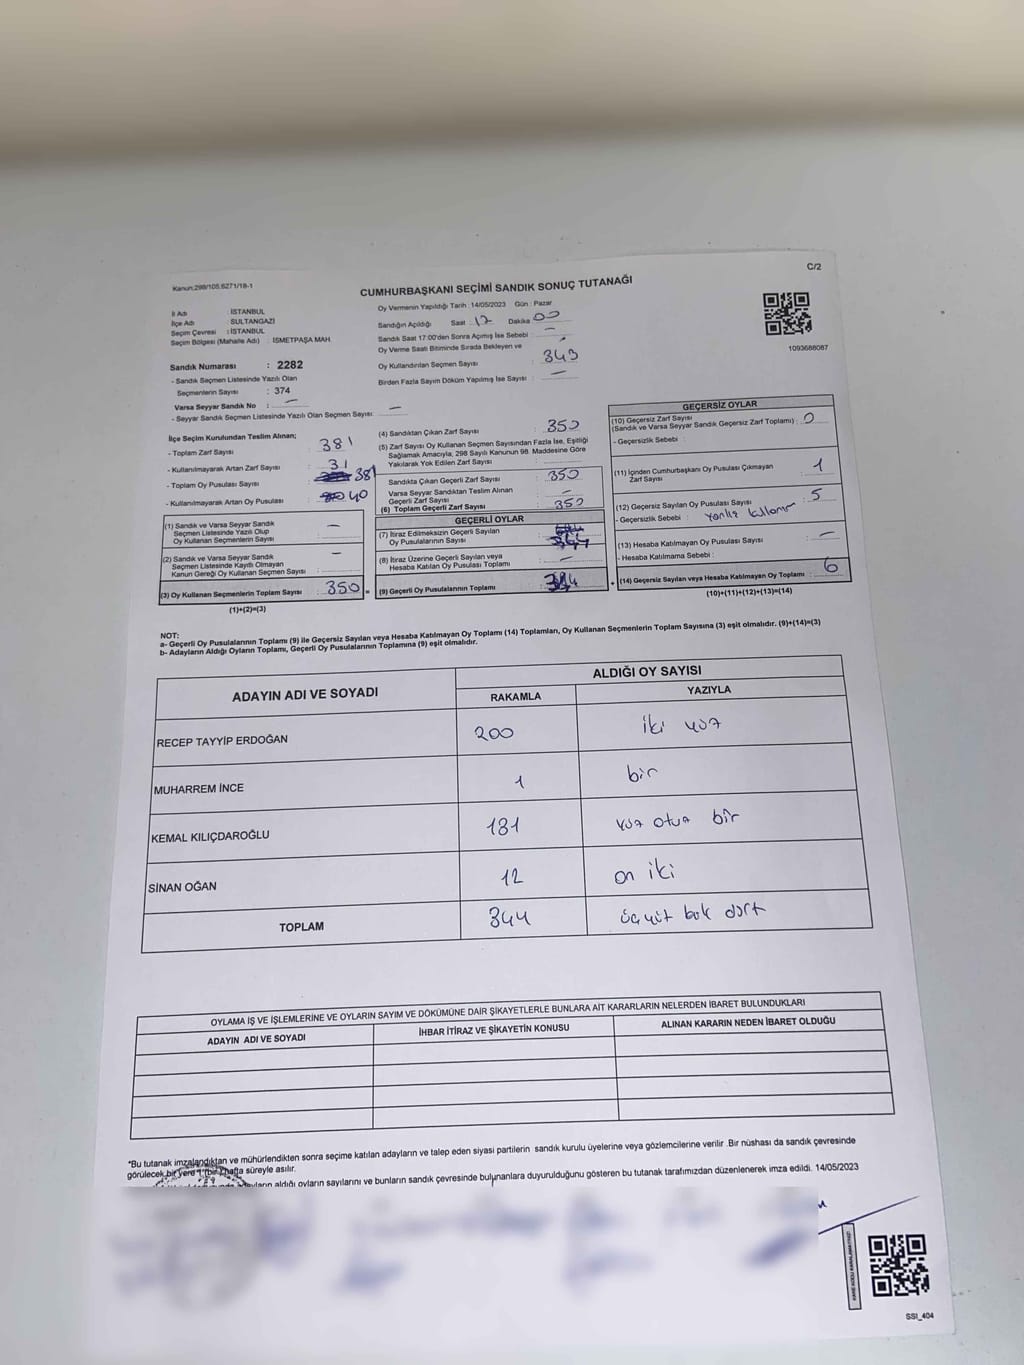 C/2
Kanun:298/105;6271/18-1
CUMHURBAŞKANI SEÇİMİ SANDIK SONUÇ TUTANAĞI
İl Adı : İSTANBUL
İlçe Adı : SULTANGAZİ
Seçim Çevresi : İSTANBUL
Seçim Bölgesi (Mahalle Adı) : İSMETPAŞA MAH.
Oy Vermenin Yapıldığı Tarih : 14/05/2023 Gün : Pazar
Sandığın Açıldığı Saat 17 Dakika 00
Sandık Saat 17:00'den Sonra Açılmış İse Sebebi : —
Oy Verme Saati Bitiminde Sırada Bekleyen ve
Oy Kullandırılan Seçmen Sayısı : 349
Birden Fazla Sayım Döküm Yapılmış İse Sayısı : —
1093688087
Sandık Numarası : 2282
- Sandık Seçmen Listesinde Yazılı Olan
Seçmenlerin Sayısı : 374
Varsa Seyyar Sandık No : —
- Seyyar Sandık Seçmen Listesinde Yazılı Olan Seçmen Sayısı: —
İlçe Seçim Kurulundan Teslim Alınan;
- Toplam Zarf Sayısı : 381
- Kullanılmayarak Artan Zarf Sayısı : 31
- Toplam Oy Pusulası Sayısı : 381
- Kullanılmayarak Artan Oy Pusulası : 40
(1) Sandık ve Varsa Seyyar Sandık
Seçmen Listesinde Yazılı Olup
Oy Kullanan Seçmenlerin Sayısı : —
(2) Sandık ve Varsa Seyyar Sandık
Seçmen Listesinde Kayıtlı Olmayan
Kanun Gereği Oy Kullanan Seçmen Sayısı : —
(3) Oy Kullanan Seçmenlerin Toplam Sayısı : 350 =
(1)+(2)=(3)
(4) Sandıktan Çıkan Zarf Sayısı : 350
(5) Zarf Sayısı Oy Kullanan Seçmen Sayısından Fazla İse, Eşitliği
Sağlamak Amacıyla, 298 Sayılı Kanunun 98. Maddesine Göre
Yakılarak Yok Edilen Zarf Sayısı :
Sandıkta Çıkan Geçerli Zarf Sayısı : 350
Varsa Seyyar Sandıktan Teslim Alınan
Geçerli Zarf Sayısı : —
(6) Toplam Geçerli Zarf Sayısı : 350
GEÇERLİ OYLAR
(7) İtiraz Edilmeksizin Geçerli Sayılan
Oy Pusulalarının Sayısı : 344
(8) İtiraz Üzerine Geçerli Sayılan veya
Hesaba Katılan Oy Pusulası Toplamı : —
(9) Geçerli Oy Pusulalarının Toplamı : 344 +
GEÇERSİZ OYLAR
(10) Geçersiz Zarf Sayısı
(Sandık ve Varsa Seyyar Sandık Geçersiz Zarf Toplamı) : 0
- Geçersizlik Sebebi :
(11) İçinden Cumhurbaşkanı Oy Pusulası Çıkmayan
Zarf Sayısı : 1
(12) Geçersiz Sayılan Oy Pusulası Sayısı : 5
- Geçersizlik Sebebi :
(13) Hesaba Katılmayan Oy Pusulası Sayısı : —
- Hesaba Katılmama Sebebi :
(14) Geçersiz Sayılan veya Hesaba Katılmayan Oy Toplamı : 6
(10)+(11)+(12)+(13)=(14)
NOT:
a- Geçerli Oy Pusulalarının Toplamı (9) ile Geçersiz Sayılan veya Hesaba Katılmayan Oy Toplamı (14) Toplamları, Oy Kullanan Seçmenlerin Toplam Sayısına (3) eşit olmalıdır. (9)+(14)=(3)
b- Adayların Aldığı Oyların Toplamı, Geçerli Oy Pusulalarının Toplamına (9) eşit olmalıdır.
ADAYIN ADI VE SOYADI
ALDIĞI OY SAYISI
RAKAMLA YAZIYLA
RECEP TAYYİP ERDOĞAN 200 iki yüz
MUHARREM İNCE 1 bir
KEMAL KILIÇDAROĞLU 131 yüz otuz bir
SİNAN OĞAN 12 on iki
TOPLAM 344 üçyüt bok dört
OYLAMA İŞ VE İŞLEMLERİNE VE OYLARIN SAYIM VE DÖKÜMÜNE DAİR ŞİKAYETLERLE BUNLARA AİT KARARLARIN NELERDEN İBARET BULUNDUKLARI
ADAYIN ADI VE SOYADI İHBAR İTİRAZ VE ŞİKAYETİN KONUSU ALINAN KARARIN NEDEN İBARET OLDUĞU
*Bu tutanak imzalandıktan ve mühürlendikten sonra seçime katılan adayların ve talep eden siyasi partilerin sandık kurulu üyelerine veya gözlemcilerine verilir .Bir nüshası da sandık çevresinde
görülecek bir yere 1 (bir) hafta süreyle asılır.
aldığı oyların sayılarını ve bunların sandık çevresinde bulunanlara duyurulduğunu gösteren bu tutanak tarafımızdan düzenlenerek imza edildi. 14/05/2023
SSI_404